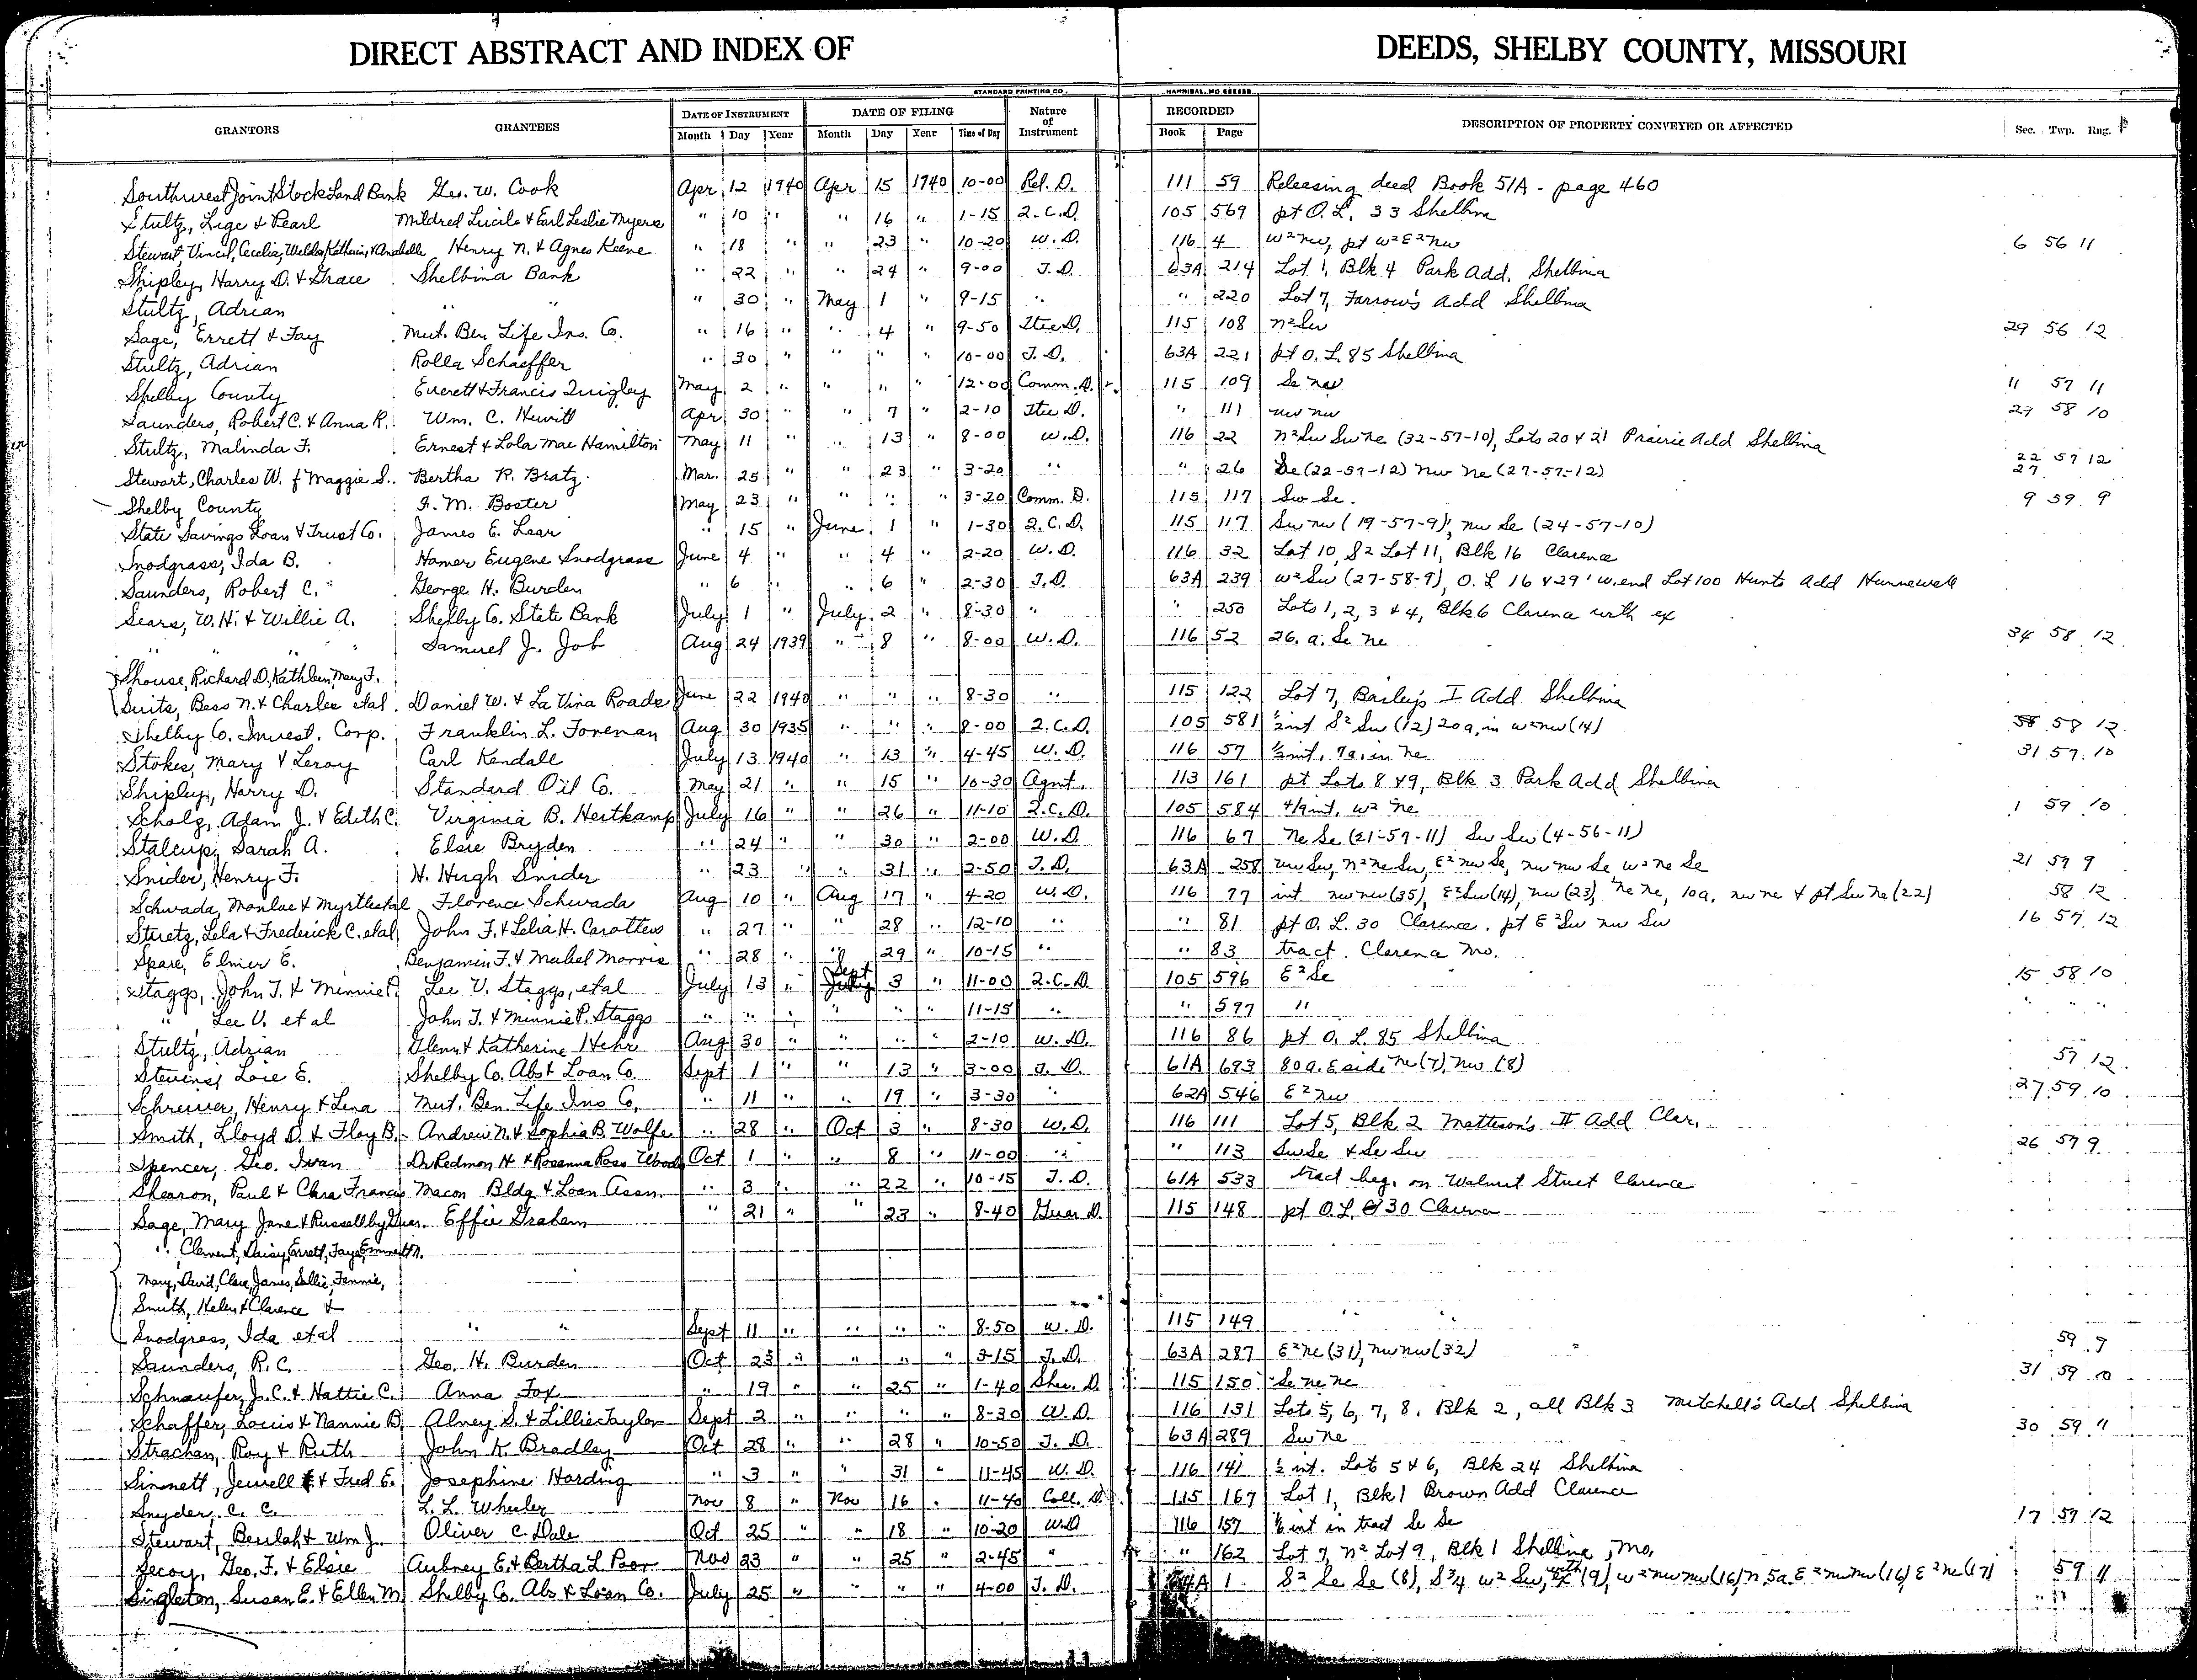 DIRECT ABSTRACT AND INDEX OF DEEDS, SHELBY COUNTY, MISSOURI
STANDARD PRINTING CO. HANNIBAL, MO
GRANTORS GRANTEES DATE OF INSTRUMENT DATE OF FILING Nature of Instrument RECORDED DESCRIPTION OF PROPERTY CONVEYED OR AFFECTED Sec. Twp. Rng.
Month Day Year Month Day Year Time of Day Book Page
Southwest Joint Stock Land Bank Geo. W. Cook Apr 12 1940 Apr 15 1940 10-00 Rel. D. 111 59 Releasing deed Book 51A - page 460
Stultz, Lige & Pearl Mildred Lucile & Earl Leslie Myers " 10 " " 16 " 1-15 2.C.D. 105 569 pt O.L. 33 Shelbina
Stewart, Vincil, Cecelia, Weldon, Katherine & Anabelle Henry N. & Agnes Keene " 18 " " 23 " 10-20 W.D. 116 4 W²NW, pt W²E²NW 6 56 11
Shipley, Harry D. & Grace Shelbina Bank " 22 " " 24 " 9-00 T.D. 63A 214 Lot 1, Blk 4 Park Add. Shelbina
Stultz, Adrian " " " 30 " May 1 " 9-15 " " 220 Lot 7, Farrow's Add Shelbina
Sage, Errett & Fay Mut. Ben. Life Ins. Co. " 16 " " 4 " 9-50 Tte D. 115 108 N²SW 29 56 12
Stultz, Adrian Rolla Schaeffer " 30 " " " " 10-00 T.D. 63A 221 pt O.L. 85 Shelbina
Shelby County Everett & Francis Quigley May 2 " " " " 12-00 Comm. D. 115 109 Se NW 11 57 11
Saunders, Robert C. & Anna R. Wm. C. Hewitt Apr 30 " " 7 " 2-10 Tte D. " 111 NW NW 29 58 10
Stultz, Malinda F. Ernest & Lola Mae Hamilton May 11 " " 13 " 8-00 W.D. 116 22 N²SW SW NE (32-57-10), Lots 20 & 21 Prairie Add Shelbina
Stewart, Charles W. & Maggie S. Bertha R. Bratz. Mar. 25 " " 23 " 3-20 " " 26 Se (22-57-12) NW NE (27-57-12) 22 27 57 12
Shelby County F. M. Boster May 23 " " " " 3-20 Comm. D. 115 117 SW Se. 9 59 9
State Savings Loan & Trust Co. James E. Lear " 15 " June 1 " 1-30 2.C.D. 115 117 SW NW (19-57-9), NW Se (24-57-10)
Snodgrass, Ida B. Homer Eugene Snodgrass June 4 " " 4 " 2-20 W.D. 116 32 Lot 10, S2 Lot 11, Blk 16 Clarence
Saunders, Robert C. George H. Burden " 6 " " 6 " 2-30 T.D. 63A 239 W²SW (27-58-9), O.L 16 & 29' W. end Lot 100 Hunts Add Hunnewell
Sears, W.H. & Willie A. Shelby Co. State Bank July 1 " July 2 " 8-30 " " 250 Lots 1, 2, 3 & 4, Blk 6 Clarence with ex
" " " " Samuel J. Job Aug 24 1939 " 8 " 8-00 W.D. 116 52 26. a. Se NE 34 58 12
Shouse, Richard D, Kathleen, Mary F.
Suits, Bess N. & Charles etal. Daniel W. & La Vina Roads June 22 1940 " " " 8-30 " 115 122 Lot 7, Bailey's I Add Shelbina
Shelby Co. Invest. Corp. Franklin L. Foreman Aug 30 1935 " " " 8-00 2.C.D. 105 581 ½int S² SW (12) 20a, in W²NW (14) 58 12
Stokes, Mary & Leroy Carl Kendall July 13 1940 " 13 " 4-45 W.D. 116 57 ½int, 7a, in NE 31 57 10
Shipley, Harry D. Standard Oil Co. May 21 " " 15 " 10-30 Agmt. 113 161 pt Lots 8 & 9, Blk 3 Park Add Shelbina
Scholz, Adam J. & Edith C. Virginia B. Hertkamp July 16 " " 26 " 11-10 2.C.D. 105 584 4/9int, W² NE 1 59 10
Stalcup, Sarah A. Elsie Bryden " 24 " " 30 " 2-00 W.D. 116 67 NE Se (21-57-11) SW SW (4-56-11)
Snider, Henry F. H. Hugh Snider " 23 " " 31 " 2-50 T.D. 63A 258 NW SW, N²NE SW, E²NW Se, NW NW Se W²NE Se 21 59 9
Schwada, Monlae & Myrtle etal Florence Schwada Aug 10 " Aug 17 " 4-20 W.D. 116 77 int NW NW (35), E²SW (14), NW (23), NE NE, 10a, NW NE & pt SW NE (22) 58 12
Sturtz, Lela & Frederick C. etal John F. & Lelia H. Carothers " 27 " " 28 " 12-10 " " 81 pt O.L. 30 Clarence. pt E²SW NW SW 16 57 12
Spare, Elmer E. Benjamin F. & Mabel Morris " 28 " " 29 " 10-15 " " 83 tract. Clarence Mo.
Staggs, John T. & Minnie P. Lee V. Staggs, etal July 13 " Sept 3 " 11-00 2.C.D. 105 596 E²Se 15 58 10
" , Lee V. et al John T. & Minnie P. Staggs " " " " " " 11-15 " " 597 " " " "
Stultz, Adrian Glenn & Katherine Hehr Aug 30 " " " " 2-10 W.D. 116 86 pt O.L. 85 Shelbina
Stevens, Loie E. Shelby Co. Abs & Loan Co. Sept 1 " " 13 " 3-00 T.D. 61A 693 80a. E side NE (7), NW (8) 57 12
Schreiver, Henry & Lena Mut. Ben. Life Ins Co. " 11 " " 19 " 3-30 " 62A 546 E²NW 27 59 10
Smith, Lloyd D. & Floy B. Andrew N. & Sophia B. Wolfe " 28 " Oct 3 " 8-30 W.D. 116 111 Lot 5, Blk 2 Matteson's II Add Clar.
Spencer, Geo. Ivan Dr Redmon H & Rosanna Ross Wood Oct 1 " " 8 " 11-00 " " 113 SW Se & Se SW 26 57 9
Shearon, Paul & Clara Francis Macon Bldg & Loan Assn. " 3 " " 22 " 10-15 T.D. 61A 533 tract beg. on Walnut Street Clarence
Sage, Mary Jane & Russell by Guar. Effie Graham " 21 " " 23 " 8-40 Guar D. 115 148 pt O.L. 30 Clarence
" , Clement, Daisy, Errett, Faye, Emmett N.
Mary, David, Clara, James, Sallie, Fannie,
Smith, Helen & Clarence &
Snodgrass, Ida etal " " Sept 11 " " " " 8-50 W.D. 115 149 " "
Saunders, R.C. Geo. H. Burden Oct 23 " " " " 3-15 T.D. 63A 287 E²NE (31), NW NW (32) 59 9
Schnaufer, J.C. & Hattie C. Anna Fox " 19 " " 25 " 1-40 Sher. D. 115 150 Se NE NE 31 59 10
Schaffer, Louis & Nannie B. Alney S. & Lillie Taylor Sept 2 " " " " 8-30 W.D. 116 131 Lots 5, 6, 7, 8. Blk 2, all Blk 3 Mitchell's Add Shelbina
Strachan, Roy & Ruth John K. Bradley Oct 28 " " 28 " 10-50 T.D. 63A 289 SW NE 30 59 11
Sinnett, Jewell & Fred E. Josephine Harding " 3 " " 31 " 11-45 W.D. 116 141 ½ int. Lots 5 & 6, Blk 24 Shelbina
Snyder, C. C. L. L. Wheeler Nov 8 " Nov 16 " 11-40 Coll. D. 115 167 Lot 1, Blk 1 Brown Add Clarence
Stewart, Beulah & Wm J. Oliver C. Dale Oct 25 " " 18 " 10-20 W.D 116 157 1/6 int in tract Se Se 17 57 12
Secoy, Geo. F. & Elsie Aubrey E. & Bertha L. Poor Nov 23 " " 25 " 2-45 " " 162 Lot 7, N² Lot 9, Blk 1 Shelbina, Mo.
Singleton, Susan E. & Ellen M Shelby Co. Abs & Loan Co. July 25 " " " " 4-00 T.D. 64A 1 S² Se Se (8), S¾ W² SW, (9), W²NW NW (16) N. 5a. E²NW NW (16) E²NE (17) 59 11